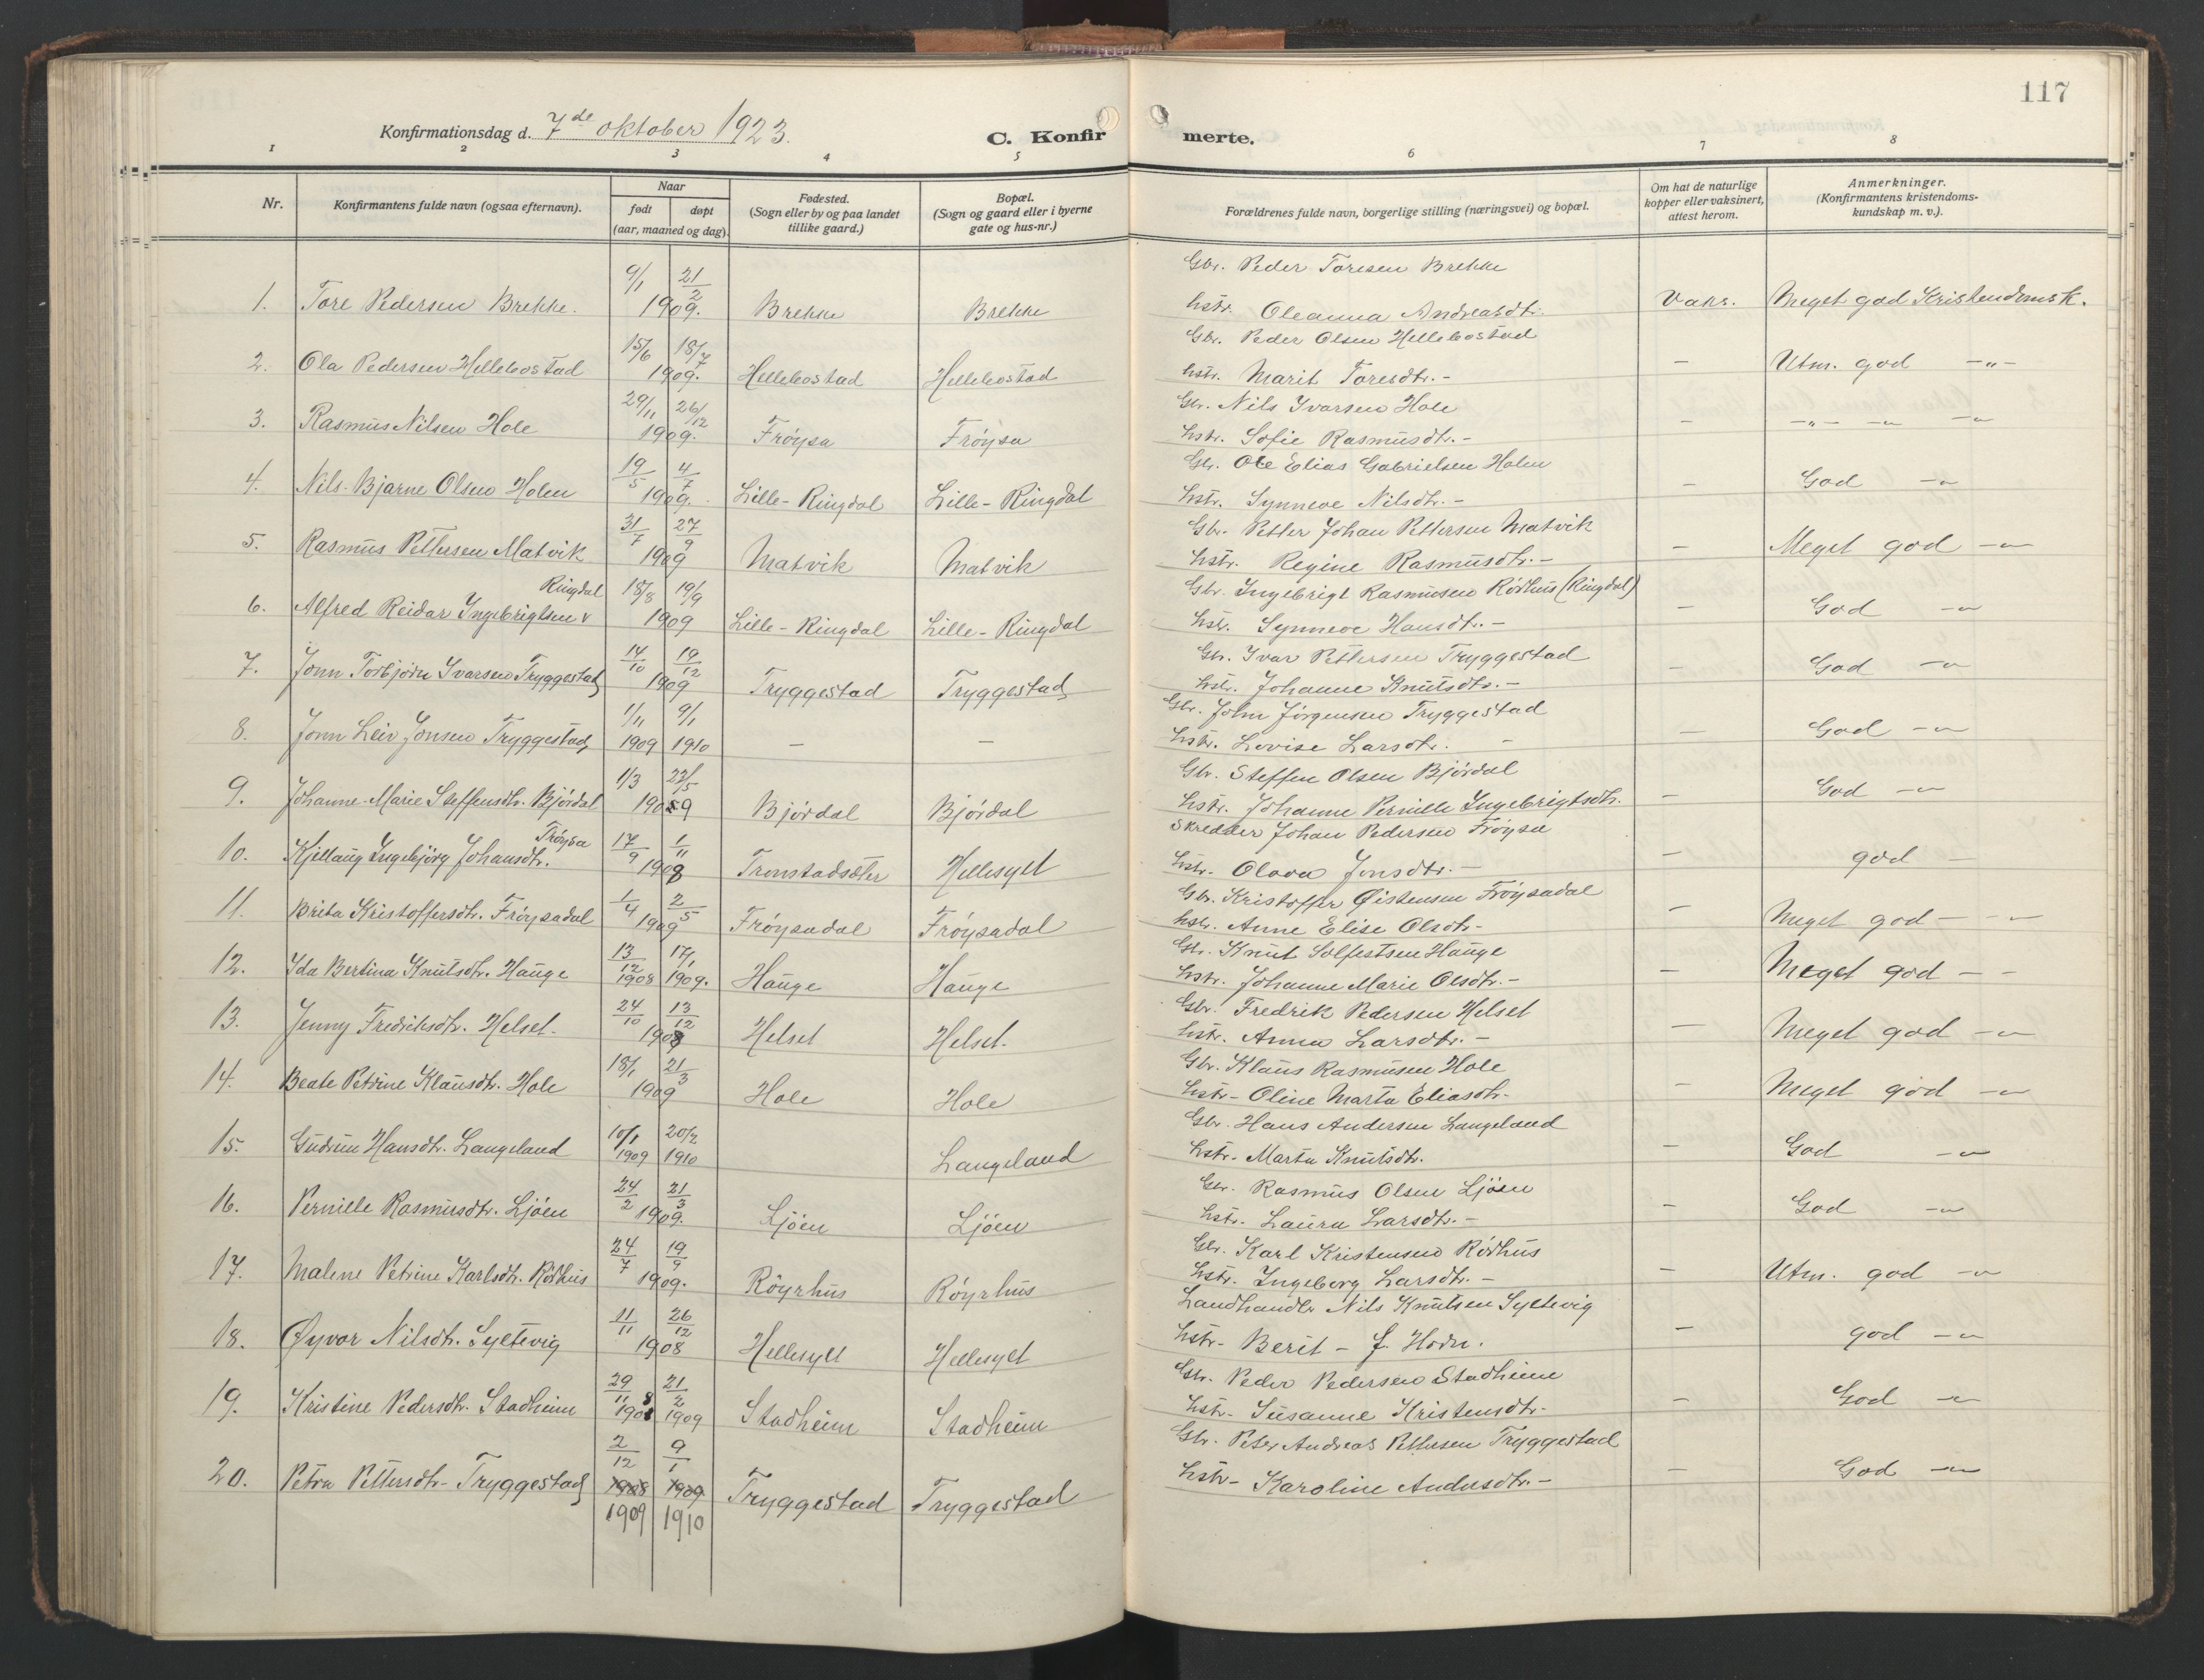 117
Konfirmationsdag d. 7de oktober 1923.
C. Konfirmerte.
1 2 3 4 5 6 7 8
Nr.
Konfirmantens fulde navn (ogsaa efternavn).
Naar
født døpt
(aar, maaned og dag).
Fødested.
(Sogn eller by og paa landet
tillike gaard.)
Bopæl.
(Sogn og gaard eller i byerne
gate og hus-nr.)
Forældrenes fulde navn, borgerlige stilling (næringsvei) og bopæl.
Om hat de naturlige
kopper eller vaksinert,
attest herom.
Anmerkninger.
(Konfirmantens kristendoms-
kundskap m. v.).
Gbr. Peder Toresen Brekke
1. Tore Pedersen Brekke. 9/1 21/2 1909. Brekke Brekke hstr. Oleanna Andreasdtr. Vaks. Meget god Kristendomsk.
Gbr. Peder Olsen Hellebostad
2. Ola Pedersen Hellebostad 15/6 18/7 1909. Hellebostad Hellebostad hstr. Marit Toresdtr. - — Utm. god —"—
Gbr. Nils Ivarsen Hole
3. Rasmus Nilsen Hole 29/11 26/12 1909. Frøysa Frøysa hstr. Sofie Rasmusdtr. - — —"— —"— —"—
Gbr. Ole Elias Gabrielsen Holen
4. Nils-Bjarne Olsen Holen 19/5 4/7 1909. Lille-Ringdal Lille-Ringdal hstr. Synneve Nilsdtr. - — God —"—
Gbr. Petter Johan Pettersen Matvik
5. Rasmus Pettersen Matvik 31/7 27/9 1909 Matvik Matvik hstr. Regine Rasmusdtr. - — Meget god —"—
Ringdal Gbr. Ingebrigt Rasmusen Rødhus (Ringdal)
6. Alfred Reidar Ingebrigtsen v 18/8 19/9 1909 Lille-Ringdal Lille-Ringdal hstr. Synneve Hansdtr. - — God —"—
Gbr. Ivar Pettersen Tryggestad
7. Jonn Torbjørn Ivarsen Tryggestad 14/10 19/12 1909 Tryggestad Tryggestad hstr. Johanne Knutsdtr. - — God —"—
Gbr. John Jørgensen Tryggestad
8. Jonn Leiv Jonsen Tryggestad 1/11 1909 9/1 1910 — — hstr. Lovise Larsdtr. - — God —"—
Gbr. Steffen Olsen Bjørdal
9. Johanne-Marie Steffensdtr. Bjørdal 1/3 23/5 1909 Bjørdal Bjørdal hstr. Johanne Pernille Ingebrigtsdtr. — God —"—
Frøysa Skredder Johan Pedersen Frøysa
10. Kjellaug Ingebjørg Johansdtr. 17/9 1/11 1908 Tronstadsæter Hellesylt hstr. Olava Jonsdtr. - — god —
Gbr. Kristoffer Øistensen Frøysadal
11. Brita Kristoffersdtr. Frøysadal 1/4 2/5 1909 Frøysadal Frøysadal hstr. Anne Elise Olsdtr. - — Meget god — —"—
Gbr. Knut Solfestsen Hauge
12. Ida Bertina Knutsdtr. Hauge 13/12 1908 17/1 1909. Hauge Hauge hstr. Johanne Marie Olsdtr. - — Meget god — —
Gbr. Fredrik Pedersen Helset
13. Jenny Fredriksdtr. Helset. 24/10 13/12 1908 Helset Helset. hstr. Anna Larsdtr. - — Meget god —"—
Gbr. Klaus Rasmusen Hole
14. Beate Petrine Klausdtr. Hole 18/1 21/3 1909 Hole Hole hstr. Oline Marta Eliasdtr. — Meget god —"—
Gbr. Hans Andersen Langeland
15. Gudrun Hansdtr. Langeland 10/1 1909 20/2 1910 Langeland hstr. Marta Knutsdtr. — God —"—
Gbr. Rasmus Olsen Ljøen
16. Pernille Rasmusdtr. Ljøen 24/2 21/3 1909. Ljøen Ljøen hstr. Laura Larsdtr. - — God —"—
Gbr. Karl Kristensen Rødhus
17. Malene Petrine Karlsdtr. Rødhus 24/7 19/9 1909. Røyrhus Røyrhus hstr. Ingeborg Larsdtr. - — Utm. god —"—
Landhandler Nils Knutsen Syltevig
18. Øyvor Nilsdtr. Syltevig 11/11 26/12 1908 Hellesylt Hellesylt hstr. Berit - f. Hodn. — god —"—
Gbr. Peder Pedersen Stadheim
19. Kristine Pedersdtr. Stadheim 29/11 1908 21/2 1909 Stadheim Stadheim hstr. Susanne Kristensdtr. — God —"—
Gbr. Peter Andreas Pettersen Tryggestad
20. Petra Pettersdtr. Tryggestad 2/12 1908 9/1 1909 Tryggestad Tryggestad hstr. Karoline Andersdtr. - — God —"—
1909 1910